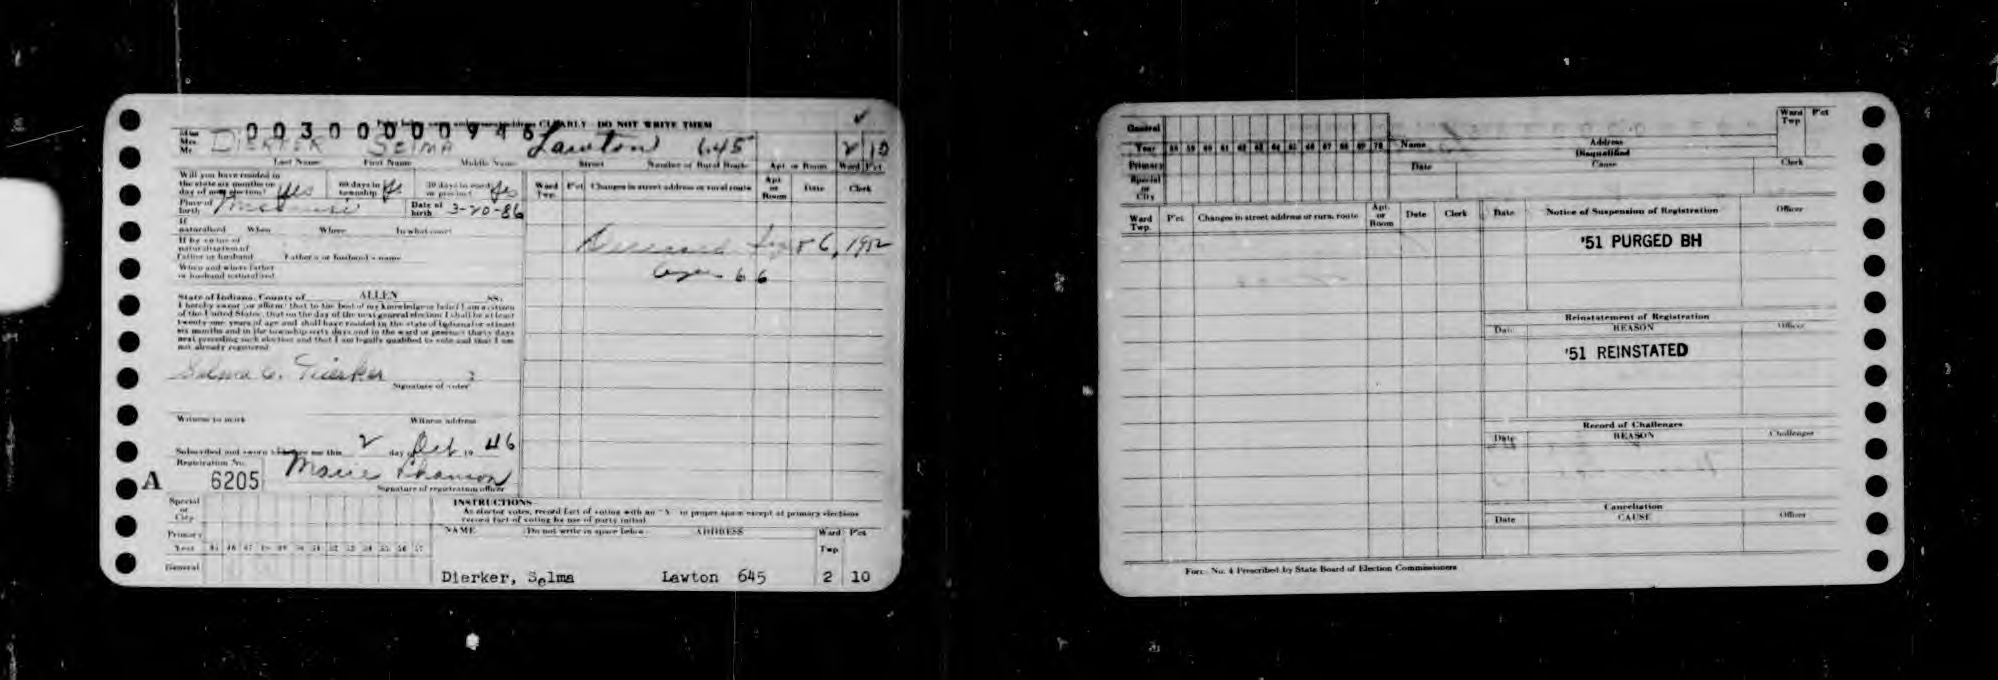 00300000946
CLEARLY DO NOT WRITE THEM
Miss
Mrs.
Mr.
DIERKER SELMA Lawton 645 2 10
Last Name First Name Middle Name Street Number or Rural Route Apt. or Room Ward Pct
Will you have resided in
the state six months on
day of next election? Yes 60 days in township Yes 30 days in ward or precinct Yes
Place of birth Missouri Date of birth 3-20-86
If
naturalized When Where In what court
If by virtue of
naturalization of
Father or husband Father's or husband's name
When and where father
or husband naturalized
State of Indiana, County of ALLEN SS:
I hereby swear (or affirm) that to the best of my knowledge or belief I am a citizen
of the United States, that on the day of the next general election I shall be at least
twenty-one years of age and shall have resided in the state of Indiana for at least
six months and in the township sixty days and in the ward or precinct thirty days
next preceding such election and that I am legally qualified to vote and that I am
not already registered.
Selma C. Dierker
Signature of voter
Witness to mark Witness address
Subscribed and sworn to before me this 2 day of Oct 19 46
Registration No.
A 6205 Marie
Signature of registration officer
Ward Twp. Pct Changes in street address or rural route Apt. or Room Date Clerk
Deceased 6, 1952
age 66
Special
or
City
Primary
Year 45 46 47 48 49 50 51 52 53 54 55 56 57
General
INSTRUCTIONS
As elector votes, record fact of voting with an "X" in proper space except at primary elections
record fact of voting by use of party initial.
NAME Do not write in space below ADDRESS Ward Twp Pct
Dierker, Selma Lawton 645 2 10
General
Year 58 59 60 61 62 63 64 65 66 67 68 69 70
Primary
Special
or
City
Name Address Ward Twp Pct
Disqualified
Date Cause Clerk
Ward Twp. Pct. Changes in street address or rural route Apt. or Room Date Clerk
Date Notice of Suspension of Registration Officer
'51 PURGED BH
Reinstatement of Registration
Date REASON Officer
'51 REINSTATED
Record of Challenges
Date REASON Challenger
Cancellation
Date CAUSE Officer
Form No. 4 Prescribed by State Board of Election Commissioners